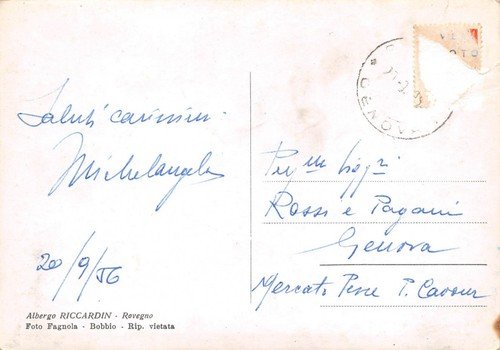 Saluti carissimi
Michelangelo
20/9/56
Albergo RICCARDIN - Rovegno
Foto Fagnola - Bobbio - Rip. vietata
Sigri
Rossi e Pagani
Genova
Mercato Pesce P. Cavour